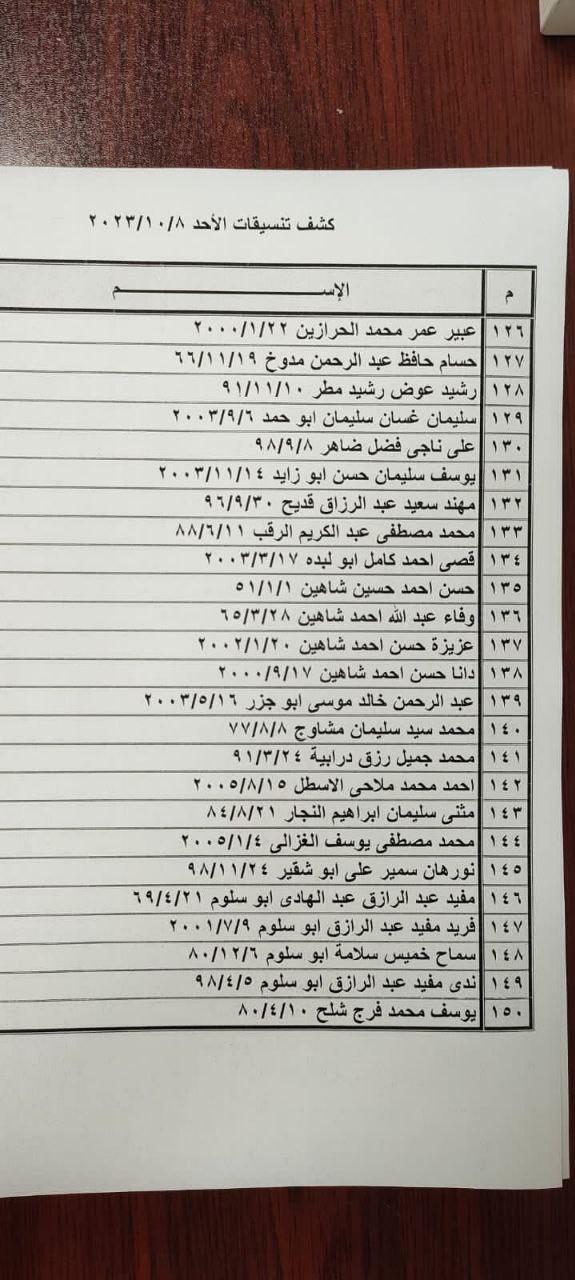 كشف تنسيقات الأحد ٢٠٢٣/١٠/٨
م الإســـــــــم
١٢٦ عبير عمر محمد الحرازين ٢٠٠٠/١/٢٢
١٢٧ حسام حافظ عبد الرحمن مدوخ ٦٦/١١/١٩
١٢٨ رشيد عوض رشيد مطر ٩١/١١/١٠
١٢٩ سليمان غسان سليمان ابو حمد ٢٠٠٣/٩/٦
١٣٠ على ناجى فضل ضاهر ٩٨/٩/٨
١٣١ يوسف سليمان حسن ابو زايد ٢٠٠٣/١١/١٤
١٣٢ مهند سعيد عبد الرزاق قديح ٩٦/٩/٣٠
١٣٣ محمد مصطفى عبد الكريم الرقب ٨٨/٦/١١
١٣٤ قصى احمد كامل ابو لبده ٢٠٠٣/٣/١٧
١٣٥ حسن احمد حسين شاهين ٥١/١/١
١٣٦ وفاء عبد الله احمد شاهين ٦٥/٣/٢٨
١٣٧ عزيزة حسن احمد شاهين ٢٠٠٢/١/٢٠
١٣٨ دانا حسن احمد شاهين ٢٠٠٠/٩/١٧
١٣٩ عبد الرحمن خالد موسى ابو جزر ٢٠٠٣/٥/١٦
١٤٠ محمد سيد سليمان مشاوج ٧٧/٨/٨
١٤١ محمد جميل رزق درابية ٩١/٣/٢٤
١٤٢ احمد محمد ملاحى الاسطل ٢٠٠٥/٨/١٥
١٤٣ مثنى سليمان ابراهيم النجار ٨٤/٨/٢١
١٤٤ محمد مصطفى يوسف الغزالى ٢٠٠٥/١/٤
١٤٥ نورهان سمير على ابو شقير ٩٨/١١/٢٤
١٤٦ مفيد عبد الرازق عبد الهادى ابو سلوم ٦٩/٤/٢١
١٤٧ فريد مفيد عبد الرازق ابو سلوم ٢٠٠١/٧/٩
١٤٨ سماح خميس سلامة ابو سلوم ٨٠/١٢/٦
١٤٩ ندى مفيد عبد الرازق ابو سلوم ٩٨/٤/٥
١٥٠ يوسف محمد فرج شلح ٨٠/٤/١٠